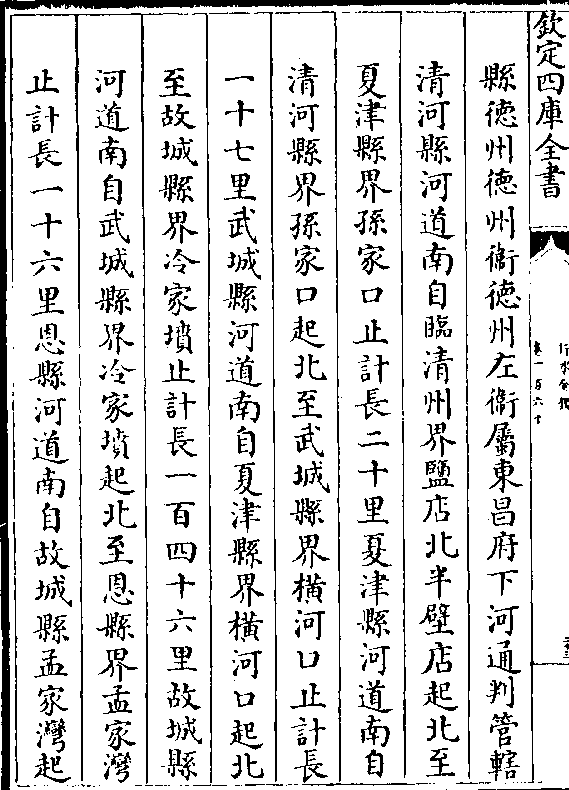 欽定四庫全書
縣德州德州衛德州左衛屬東昌府下河通判管轄
清河縣河道南自臨清州界鹽店北半壁店起北至
夏津縣界孫家口止計長二十里夏津縣河道南自
清河縣界孫家口起北至武城縣界橫河口止計長
一十七里武城縣河道南自夏津縣界橫河口起北
至故城縣界冷家墳止計長一百四十六里故城縣
河道南自武城縣界冷家墳起北至恩縣界孟家灣
止計長一十六里恩縣河道南自故城縣孟家灣起